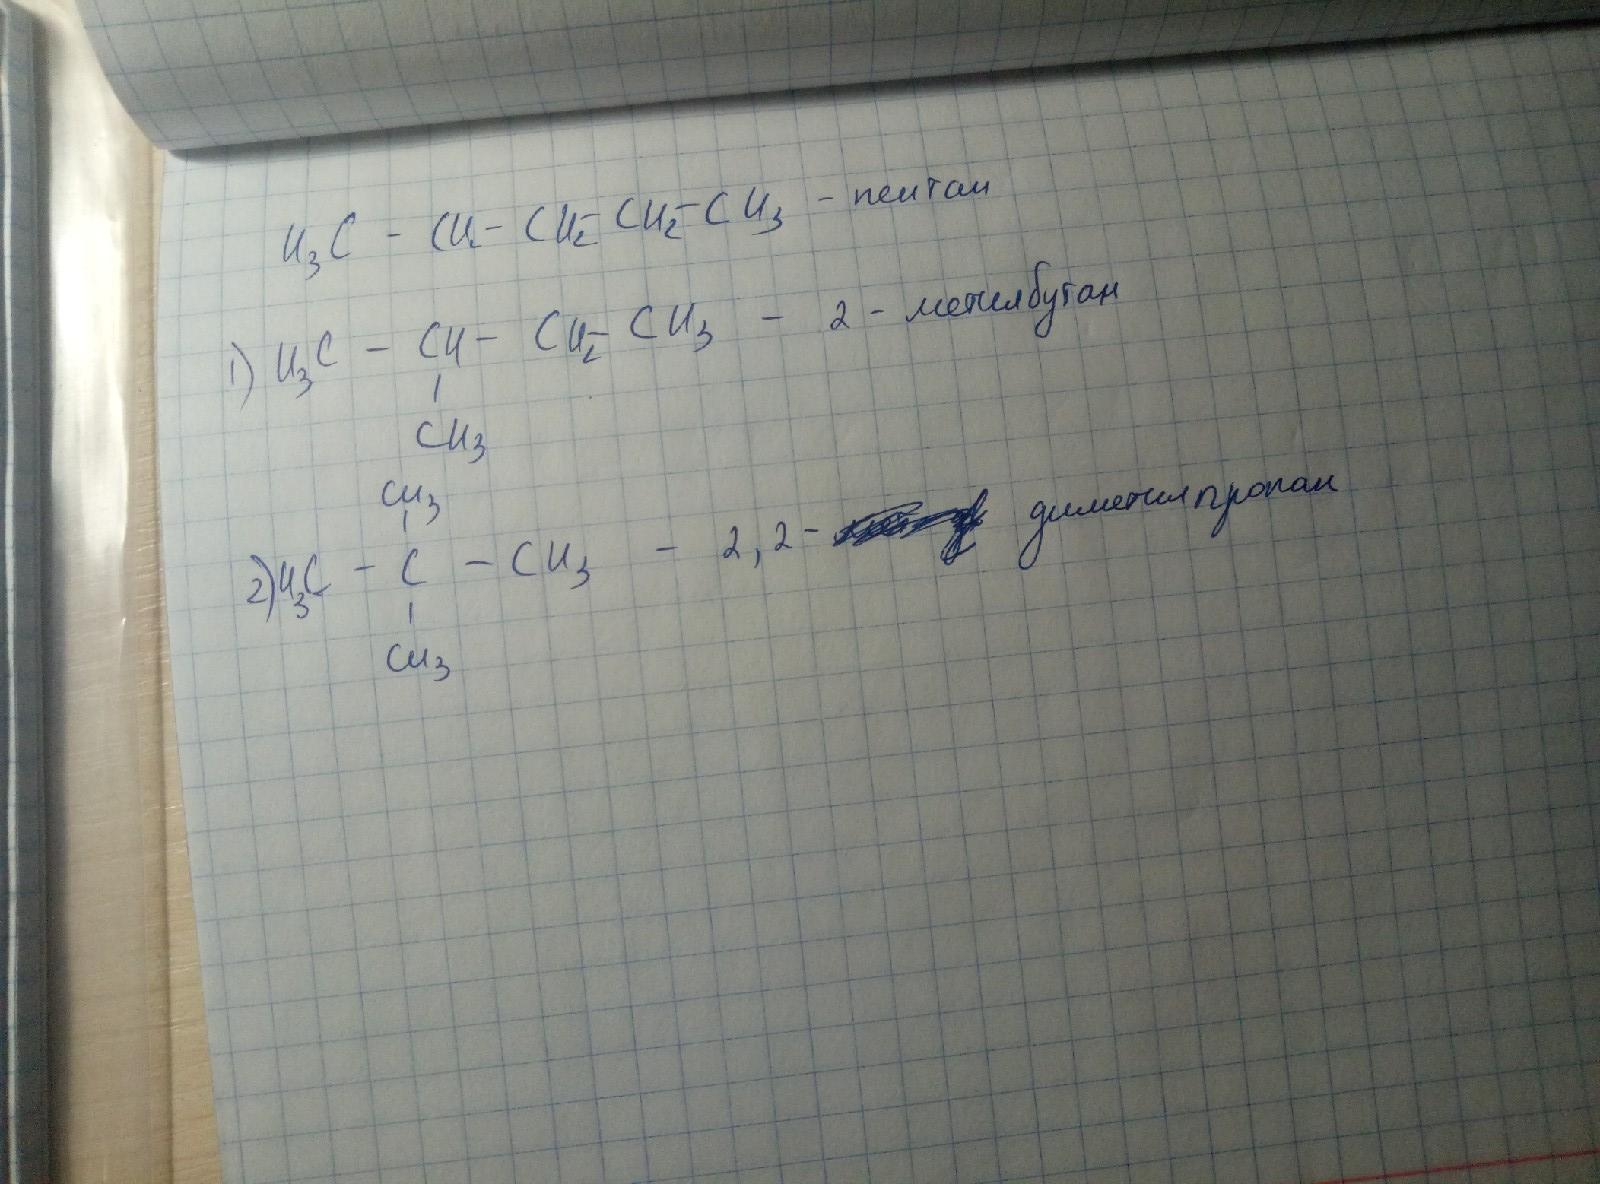 H₃C - CH₂- CH₂- CH₂- CH₃ - пентан
1) H₃C - CH - CH₂- CH₃ - 2 - метилбутан
|
CH₃
CH₃
|
2) H₃C - C - CH₃ - 2,2- диметилпропан
|
CH₃